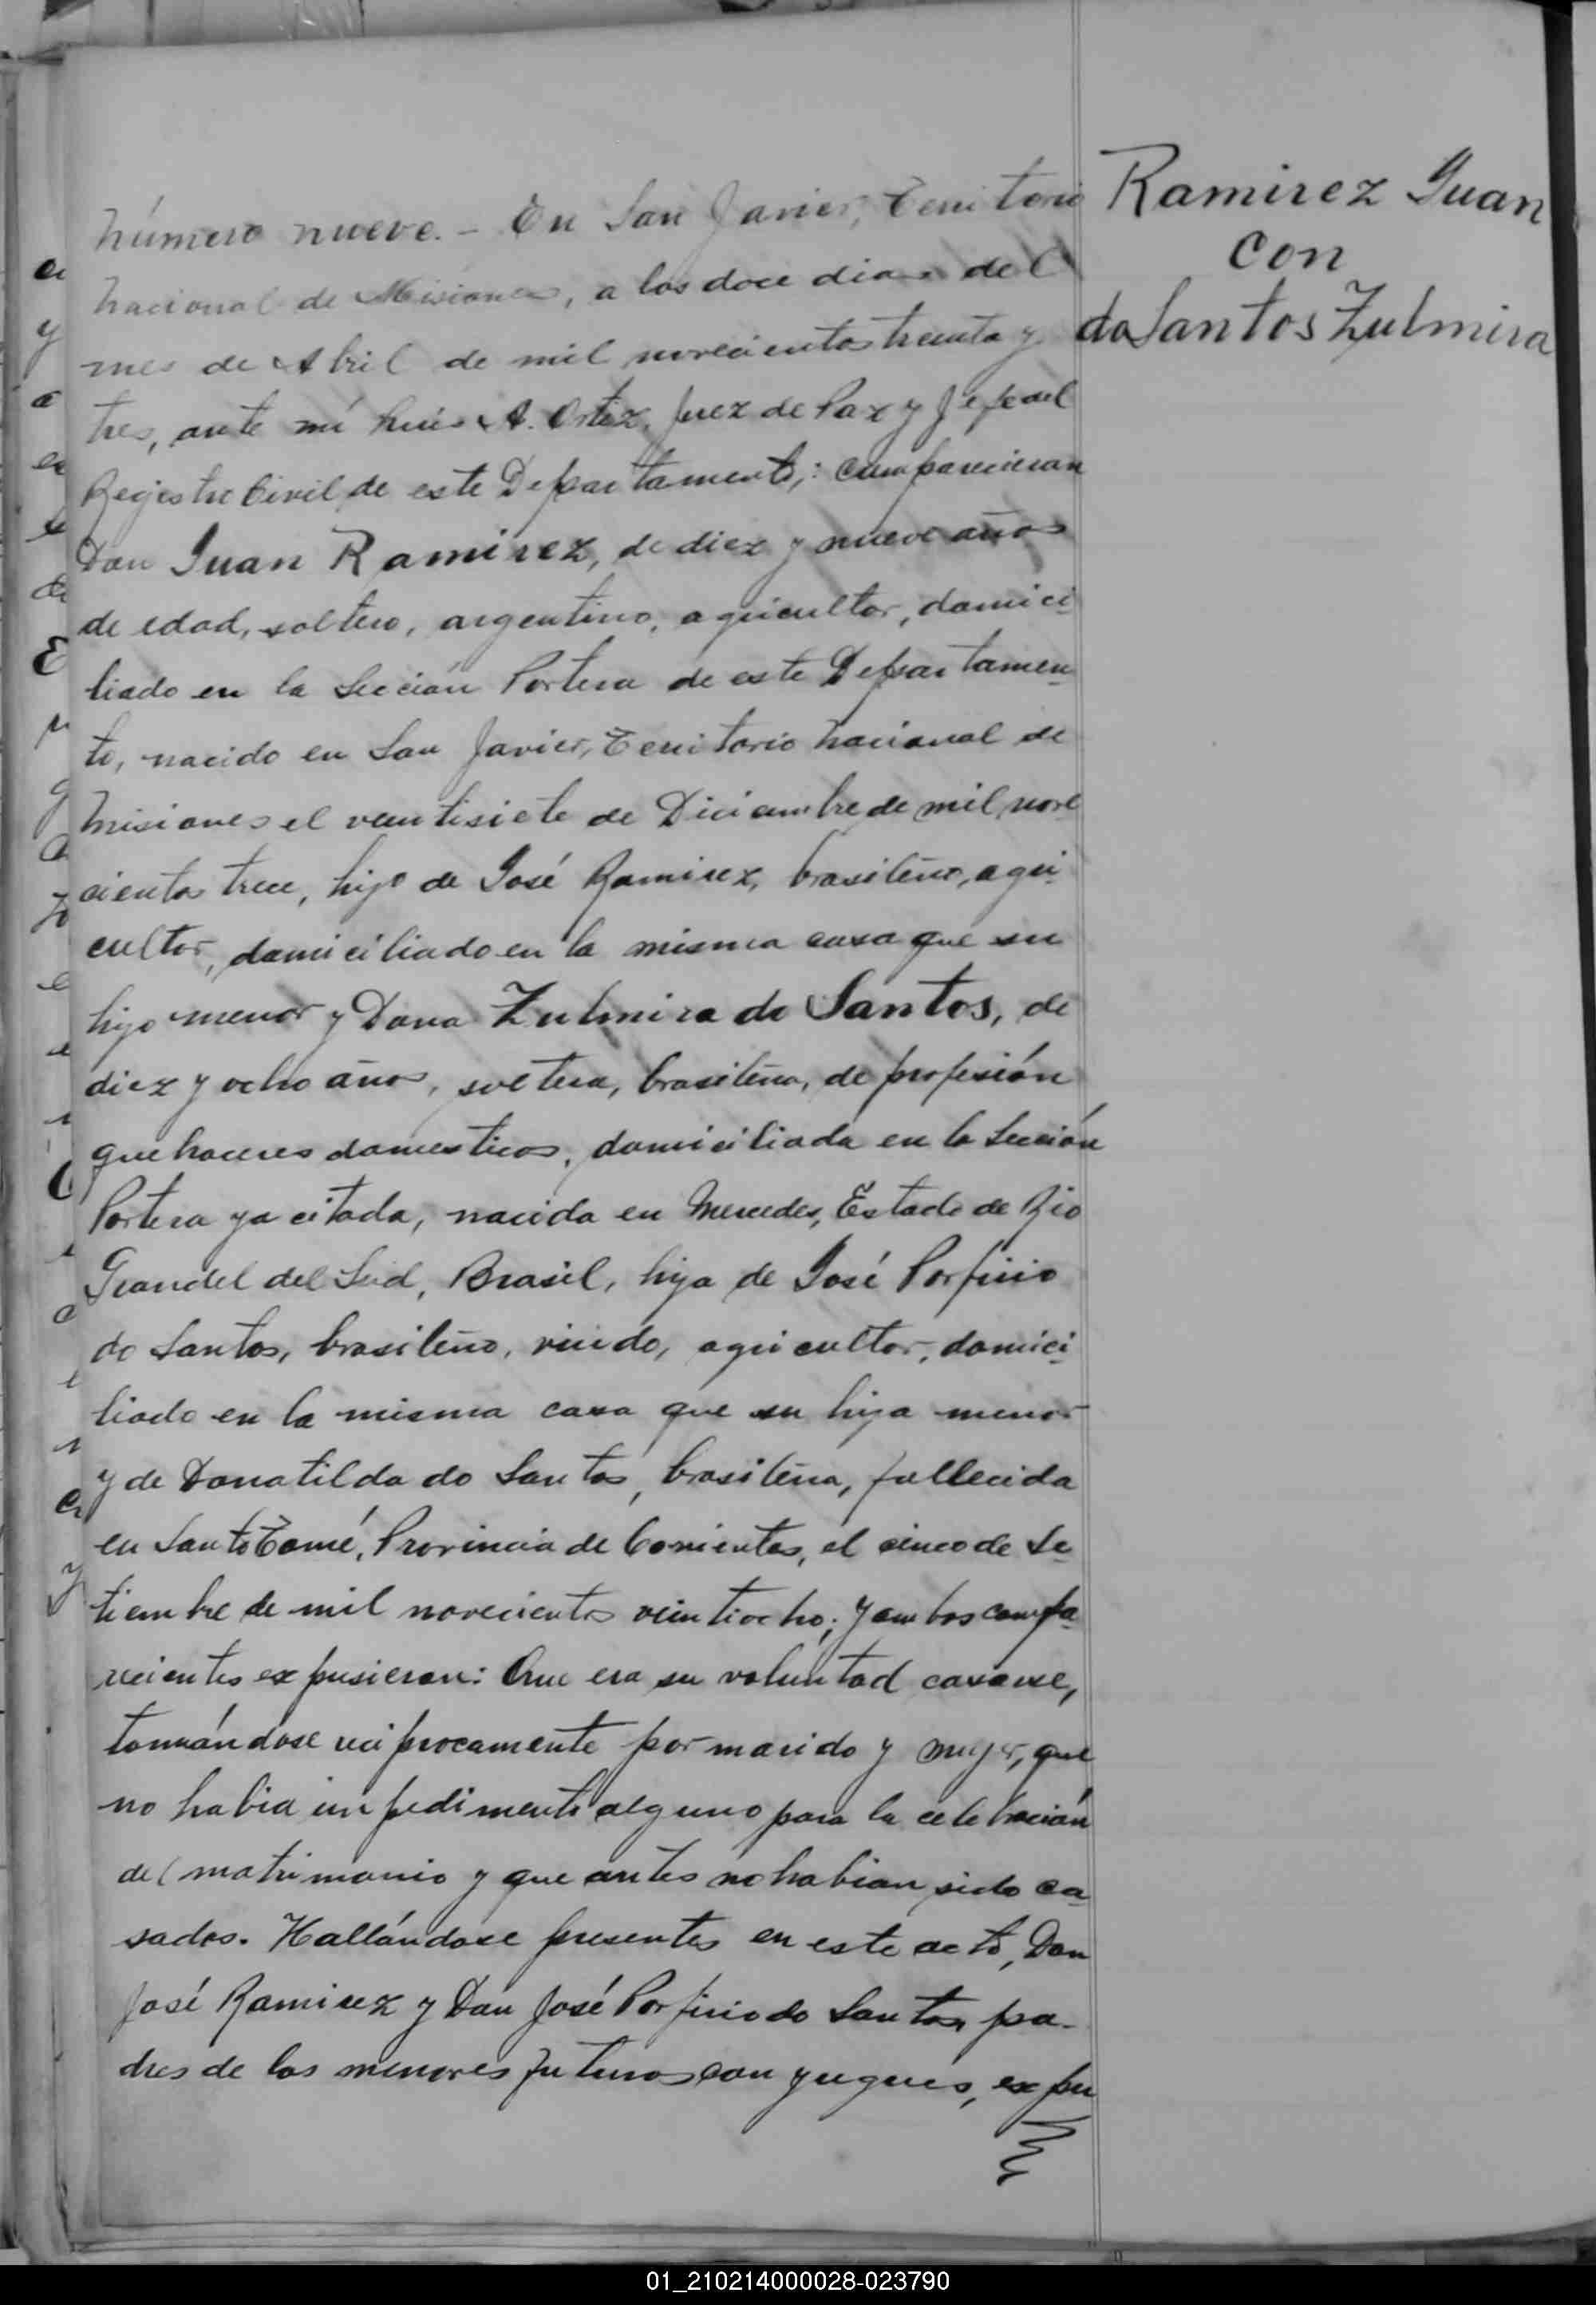 Número nueve.- En San Javier, Territorio
Nacional de Misiones, a los doce dias del
mes de Abril de mil novecientos treinta y
tres, ante mí Luis A. Ortiz, Juez de Paz y Jefe del
Registro Civil de este Departamento,: comparecieron
Don Juan Ramirez, de diez y nueve años
de edad, soltero, argentino, agricultor, domici-
liado en la Sección Portera de este Departamen-
to, nacido en San Javier, Territorio Nacional de
Misiones el veintisiete de Diciembre de mil nove
cientos trece, hijo de José Ramirez, brasileño, agri-
cultor, domiciliado en la misma casa que su
hijo menor y Doña Zulmira do Santos, de
diez y ocho años, soltera, brasileña, de profesión
quehaceres domesticos, domiciliada en la Sección
Portera ya citada, nacida en Mercedes, Estado de Rio
Grandel del Sud, Brasil, hija de José Porfirio
do Santos, brasileño, viudo, agricultor, domici-
liado en la misma casa que su hija menor
y de Donatilda do Santos, brasileña, fallecida
en Santo Tomé, Provincia de Corrientes, el cinco de Se-
tiembre de mil novecientos veintiocho; y ambos compa-
recientes expusieron: Que era su voluntad casarse,
tomándose reciprocamente por marido y mujer, que
no habia impedimento alguno para la celebración
del matrimonio y que antes no habian sido ca-
sados. Hallándose presentes en este acto, Don
José Ramirez y Don José Porfirio do Santos, pa-
dres de los menores futuros conyugues, expu
Ramirez Juan
con
do Santos Zulmira
01_210214000028-023790